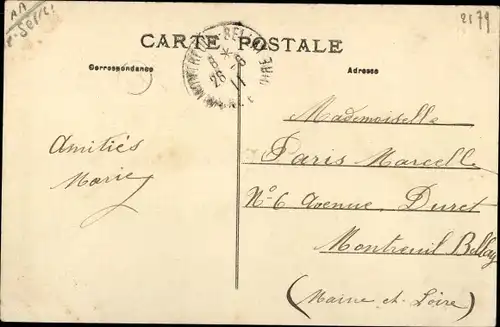 2179
CARTE POSTALE
Correspondance
Adresse
MONTREUIL-BELLAY
8
26 -6
11
Amitiés
Marie
Mademoiselle
Paris Marcelle
N°6 Avenue Duret
Montreuil Bellay
(Maine et Loire)